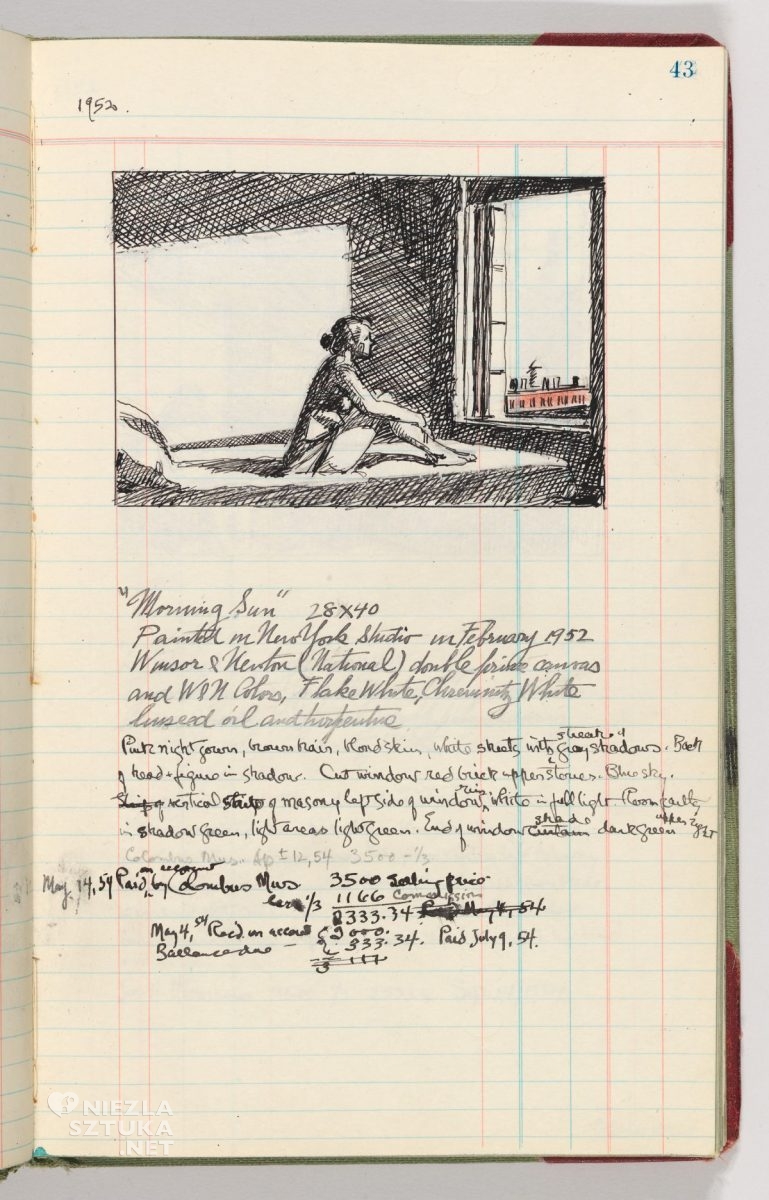 43
1952.
"Morning Sun" 28X40
Painted in New York Studio in February 1952
Winsor & Newton (National) double prime canvas
and W&N Colors, Flake White, Chremnitz White
linseed oil and turpentine
Pink night gown, brown hair, blond skin, white sheets with streaks of gray shadows. Back
of head & figure in shadow. Out window red brick upper stories. Blue sky.
Strip of vertical strip of masonry left side of window, white in full light. Room partly
in shadow green, light areas light green. End of window curtain shade dark green
Colombus Mus. Ap 12, 54 3500 - 1/3
May 14, 54 Paid on account by Colombus Mus 3500 selling price
less 1/3 1166 Commission
2333.34 Paid May 4, 54
May 4, 54 Rec'd on account 2000.
Ballance due - 333.34. Paid July 9, 54.
NIEZLA
SZTUKA
.NET